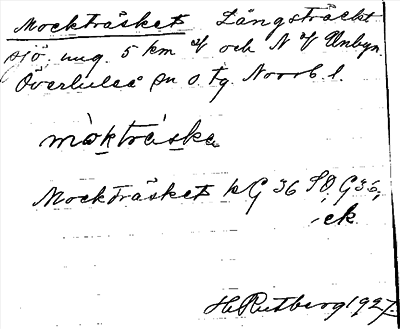 Mockträsket Långsträckt
sjö, ung. 5 km i/ och N i/ Unbyn.
Överluleå sn o. tg. Norrb. l.
mòkträska
Mockträsket kG 36 SO, G36,
ek.
H. Rutberg 1927.